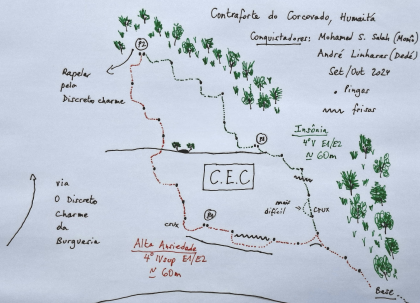 Contraforte do Corcovado, Humaitá
Conquistadores: Mohamed S. Salah (Momô)
André Linhares (Dedé)
Set/Out 2024
• Pingos
frisos
P2
Rapelar
pelo
Discreto charme
Insônia
4º V E1/E2
≈ 60m
P1
C.E.C
mais
difícil
crux
via
O Discreto
Charme
da
Burguesia
P1
crux
Alta Ansiedade
4º IVsup E1/E2
≈ 60m
Base